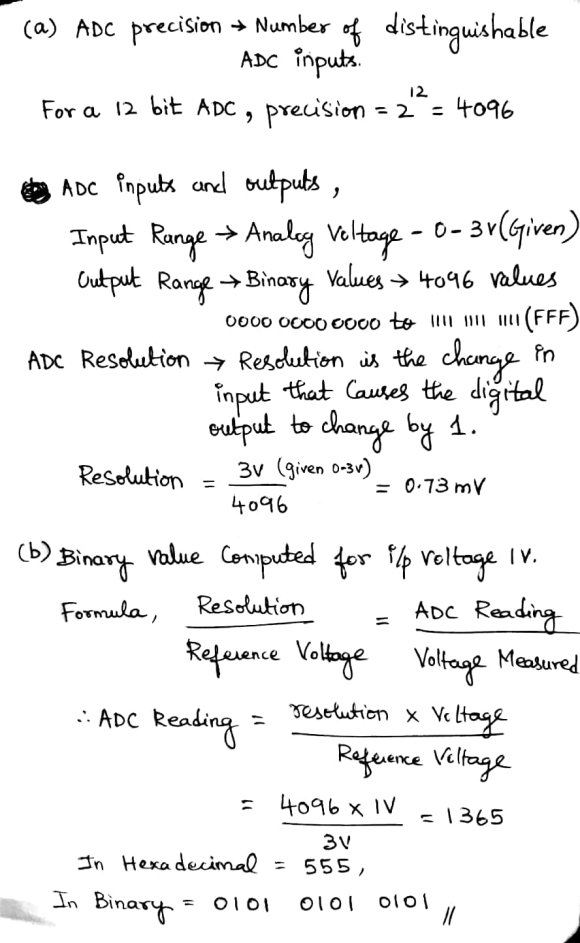 (a) ADC precision → Number of distinguishable
ADC inputs.
For a 12 bit ADC, precision = 2^12 = 4096
ADC inputs and outputs,
Input Range → Analog Voltage - 0-3V (Given)
Output Range → Binary Values → 4096 values
0000 0000 0000 to 1111 1111 1111 (FFF)
ADC Resolution → Resolution is the change in
input that causes the digital
output to change by 1.
Resolution = 3V (given 0-3V) / 4096 = 0.73 mV
(b) Binary value Computed for i/p voltage 1V.
Formula, Resolution / Reference Voltage = ADC Reading / Voltage Measured
∴ ADC Reading = resolution x Voltage / Reference Voltage
= 4096 x 1V / 3V = 1365
In Hexadecimal = 555,
In Binary = 0101 0101 0101 //